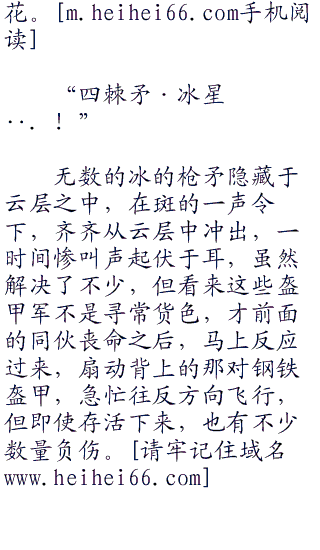 花。[m.heihei66.com手机阅
读]
“四棘矛·冰星
··．！”
无数的冰的枪矛隐藏于
云层之中，在斑的一声令
下，齐齐从云层中冲出，一
时间惨叫声起伏于耳，虽然
解决了不少，但看来这些盔
甲军不是寻常货色，才前面
的同伙丧命之后，马上反应
过来，扇动背上的那对钢铁
盔甲，急忙往反方向飞行，
但即使存活下来，也有不少
数量负伤。[请牢记住域名
www.heihei66.com]